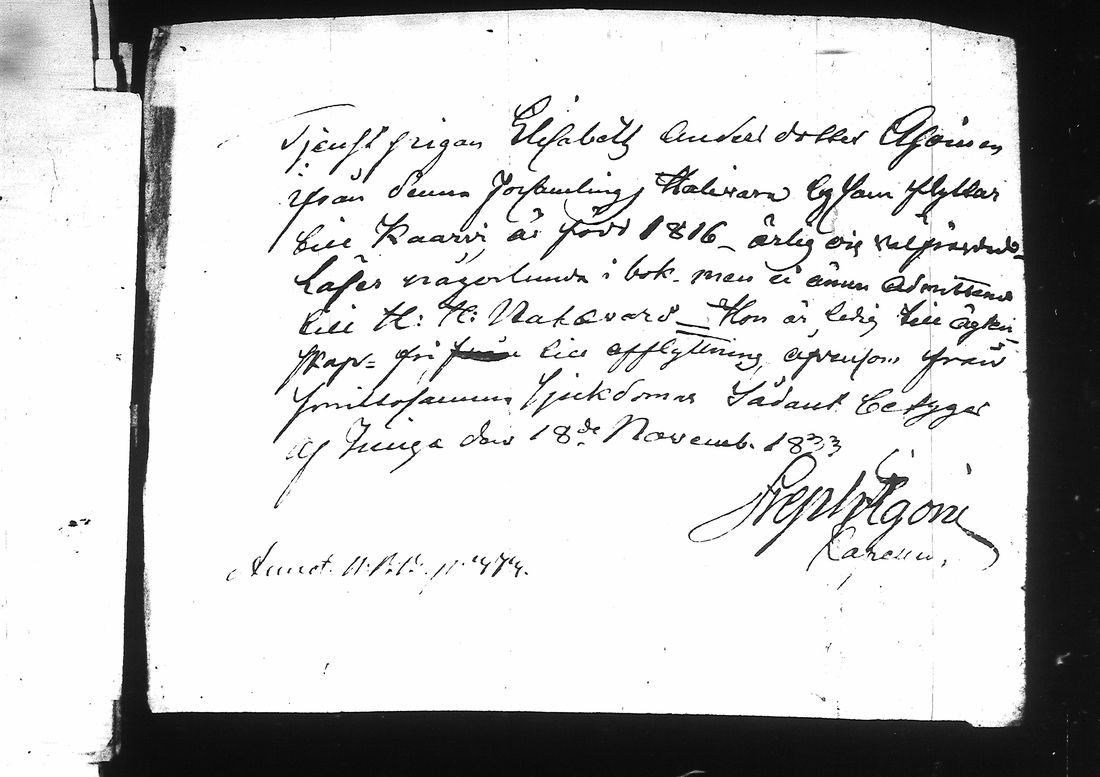 Tjenstpigan Elisabeth Anders dotter Asoinen
ifrån denna Församling, Halivara by som flyttar
till Kaarvi, är född 1816 - ärlig och välfrejdad -
Läser någorlunda i bok - men ei ännu admitterad
till H: H: Nattvard - Hon är ledig till ägten-
skap - fri till afflyttning, äfvensom från
smittosamma sjukdomar Sådant betygar
af Junga den 18de Novemb. 1833
Steph
Annot.